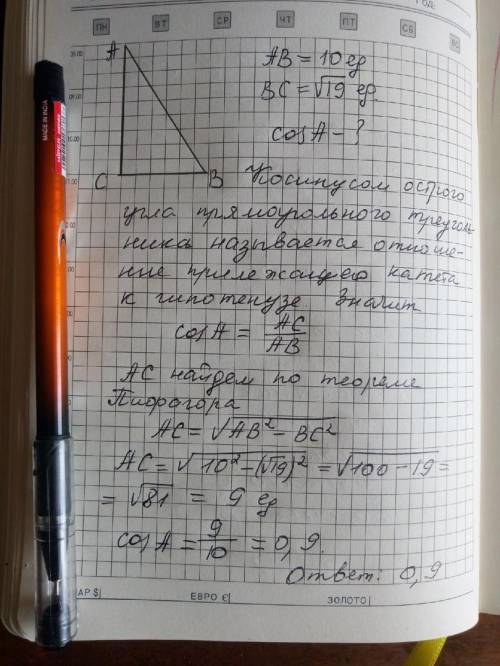 ГОД:
ПН ВТ СР ЧТ ПТ СБ ВС
A
AB = 10 ед
BC = √19 ед.
cos A - ?
C B
Косинусом острого
угла прямоугольного треуголь-
ника называется отноше-
ние прилежащего катета
к гипотенузе Значит
cos A = AC/AB
AC найдем по теореме
Пифагора
AC = √AB² - BC²
AC = √10² - (√19)² = √100 - 19 =
= √81 = 9 ед
cos A = 9/10 = 0,9.
Ответ: 0,9
АР $| ЕВРО €| ЗОЛОТО|
MADE IN INDIA